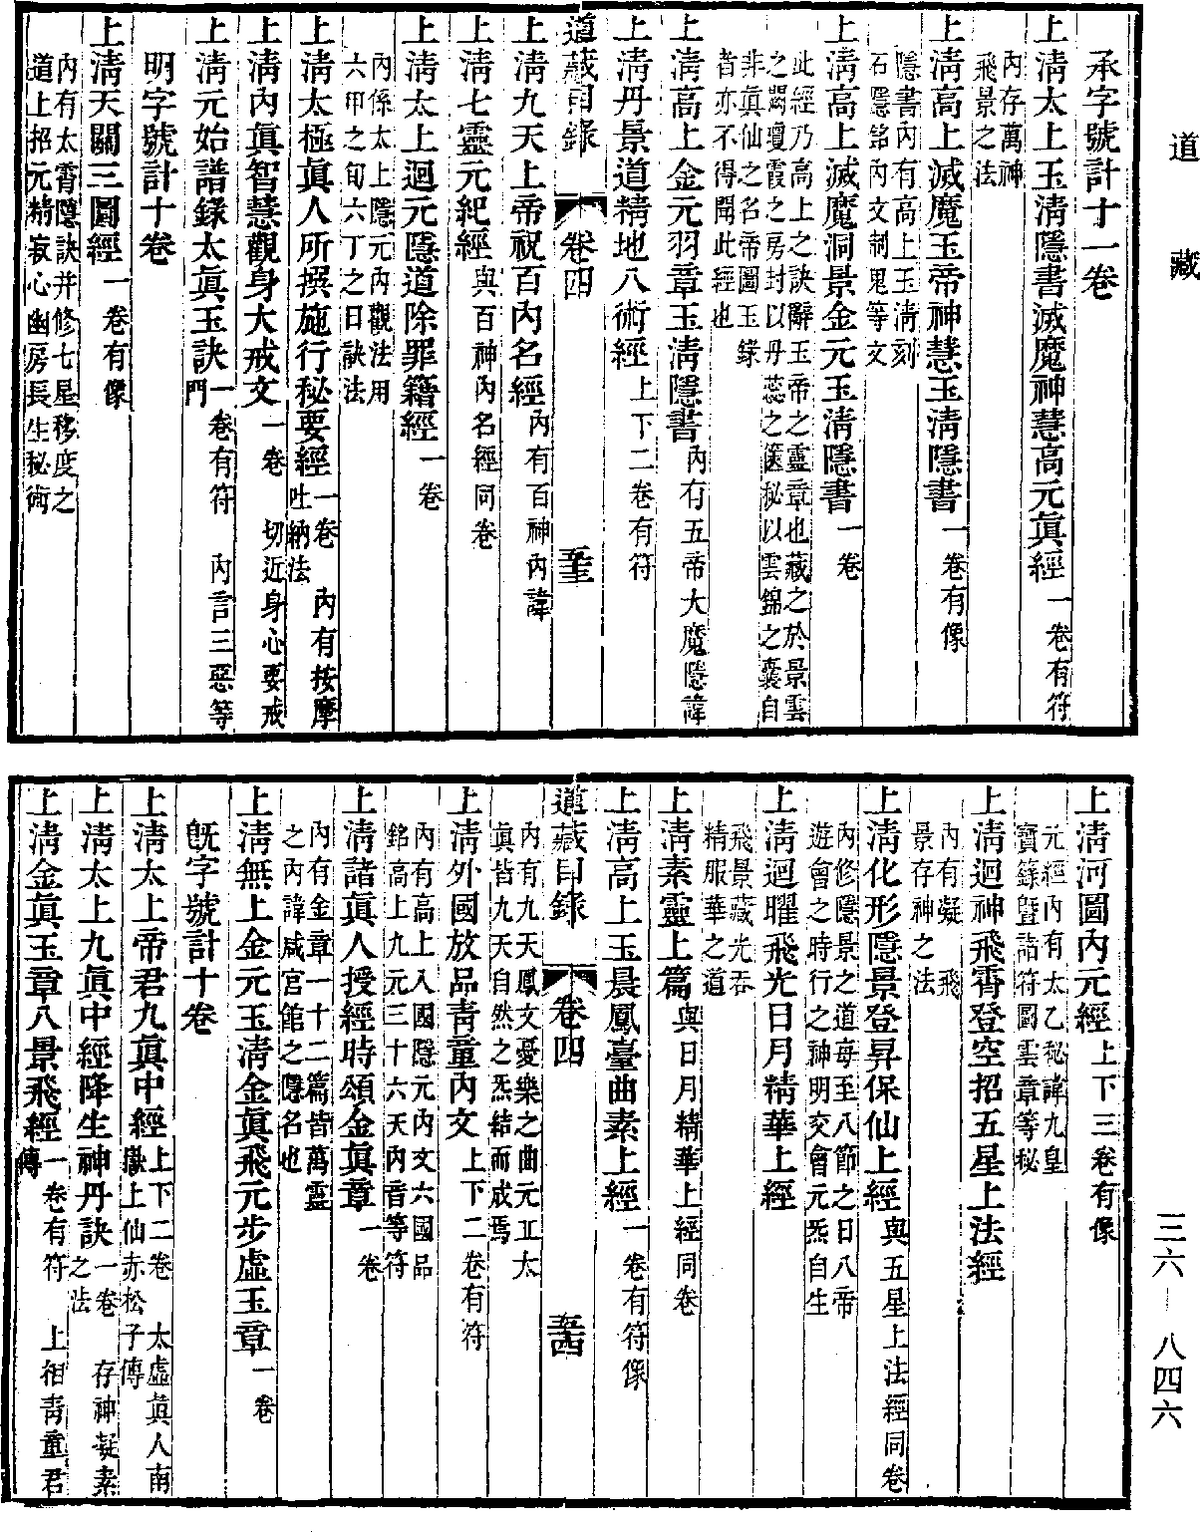 道藏
承字號計十一卷
上淸太上玉淸隱書滅魔神慧高元眞經一卷有符
內存萬神
飛景之法
上淸高上滅魔玉帝神慧玉淸隱書一卷有像
隱書內有高上玉淸刻
石隱銘內文制鬼等文
上淸高上滅魔洞景金元玉淸隱書一卷
此經乃高上之訣辭玉帝之靈章也藏之於景雲
之闕瓊霞之房封以丹蕊之篋秘以雲錦之囊自
非眞仙之名帝圖玉籙
者亦不得聞此經也
上淸高上金元羽章玉淸隱書內有五帝大魔隱諱
上淸丹景道精地八術經上下二卷有符
道藏目錄 卷四 五十三
上淸九天上帝祝百內名經內有百神內諱
上淸七靈元紀經與百神內名經同卷
上淸太上迴元隱道除罪籍經一卷
內係太上隱元內觀法用
六甲之旬六丁之日訣法
上淸太極眞人所撰施行秘要經一卷 內有按摩
吐納法
上淸內眞智慧觀身大戒文一卷 切近身心要戒
上淸元始譜錄太眞玉訣一卷有符 內言三惡等
門
明字號計十卷
上淸天關三圖經一卷有像
內有太霄隱訣并修七星移度之
道上招元精寂心幽房長生秘術
上淸河圖內元經上下三卷有像
元經內有太乙秘諱九皇
寶籙暨諸符圖雲章等秘
上淸迴神飛霄登空招五星上法經
內有凝飛
景存神之法
上淸化形隱景登昇保仙上經與五星上法經同卷
內修隱景之道每至八節之日八帝
遊會之時行之神明交會元炁自生
上淸迴曜飛光日月精華上經
飛景藏光吞
精服華之道
上淸素靈上篇與日月精華上經同卷
上淸高上玉晨鳳臺曲素上經一卷有符像
道藏目錄 卷四 五十四
內有九天鳳文憂樂之曲元丘太
眞皆九天自然之炁結而成焉
上淸外國放品靑童內文上下二卷有符
內有高上入國隱元內文六國品
銘高上九元三十六天內音等符
上淸諸眞人授經時頌金眞章一卷
內有金章一十二篇皆萬靈
之內諱咸宫館之隱名也
上淸無上金元玉淸金眞飛元步虛玉章一卷
旣字號計十卷
上淸太上帝君九眞中經上下二卷 太虛眞人南
嶽上仙赤松子傳
上淸太上九眞中經降生神丹訣一卷 存神凝素
之法
上淸金眞玉章八景飛經一卷有符 上相靑童君
傳
三六—八四六